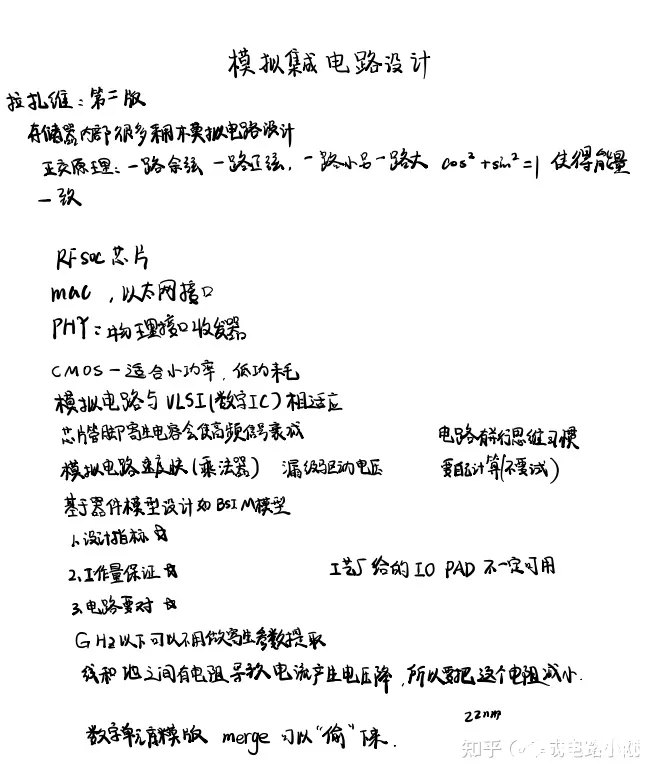 模拟集成电路设计
拉扎维：第二版
存储器内部很多利用模拟电路设计
正交原理：一路余弦 一路正弦，一路小另一路大 cos²+sin²=1 使得能量
一致
RFsoc芯片
mac，以太网接口
PHY：物理接口收发器
CMOS－适合小功率，低功耗
模拟电路与VLSI(数字IC)相适应
芯片管脚寄生电容会使高频信号衰减
电路有并行思维习惯
模拟电路速度快(乘法器) 漏级驱动电压
要自己计算(不要试)
基于器件模型设计如BSIM模型
1.设计指标☆
2.工作量保证☆
工艺厂给的IO PAD不一定可用
3.电路要对☆
GHz以下可以不用做寄生参数提取
线和地之间有电阻导致电流产生电压降，所以要把这个电阻减小.
22nm
数字单元有模版 merge 可以“偷”下来.
知乎 电路小